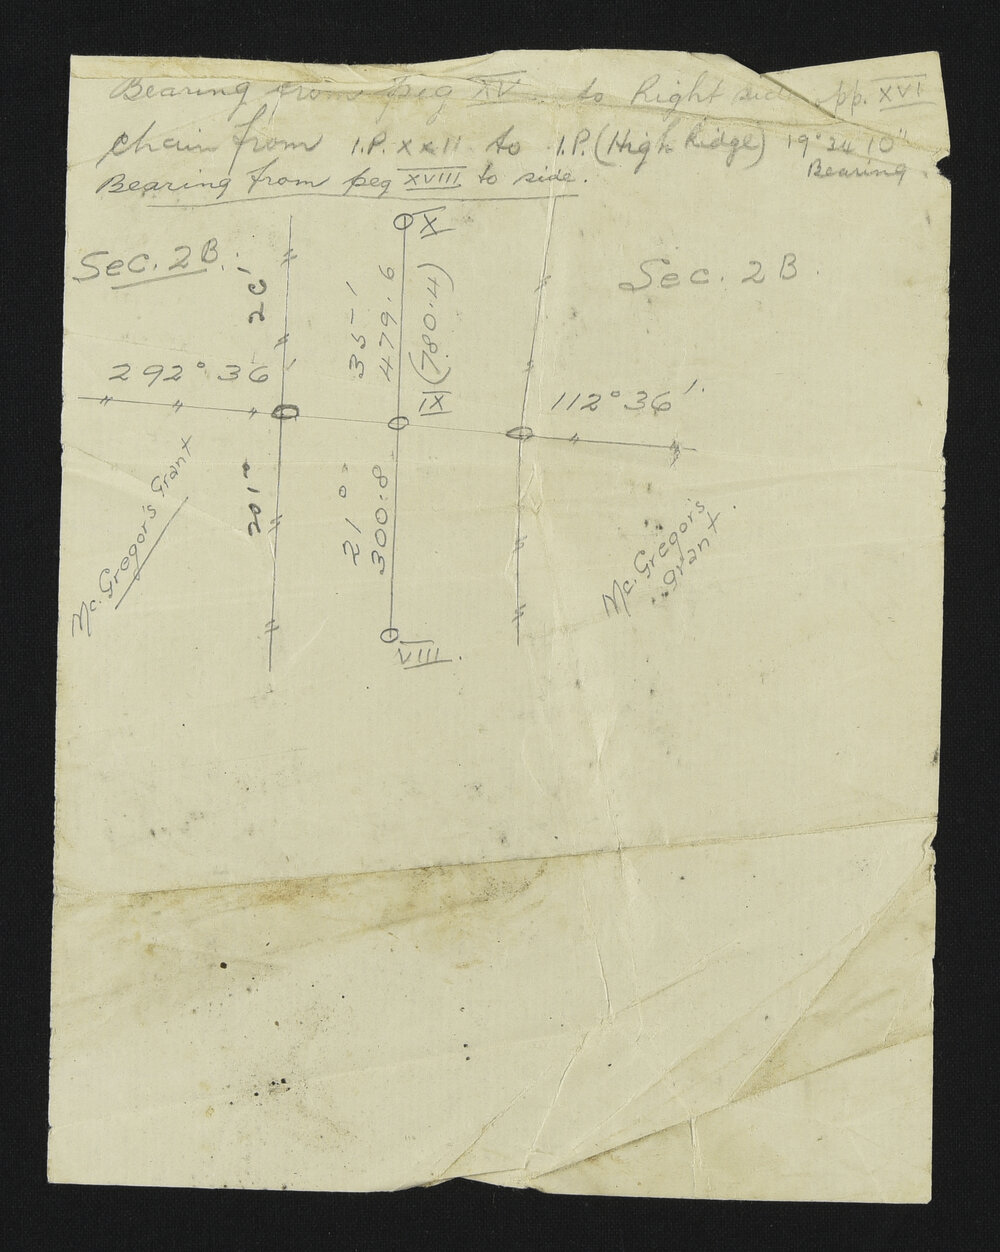 Bearing from peg XV to Right side opp. XVI
Chain from I.P. XXII to I.P. (High Ridge) 19° 34 10"
Bearing
Bearing from peg XVIII to side.
X
Sec. 2 B.
Sec. 2 B.
20'
35 - 1
479.6
(780.4)
292° 36'
IX
112° 36'.
Mc. Gregor's Grant
201
21 0
300.8
Mc. Gregor's
grant.
VIII.